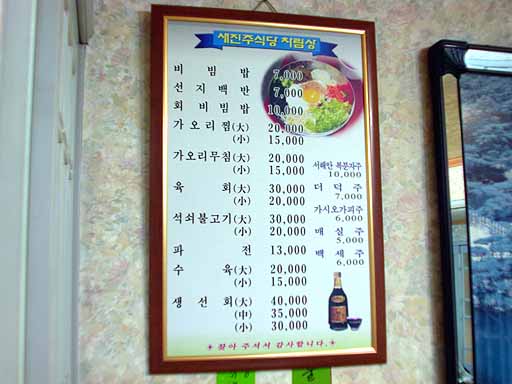 새진주식당 차림상
비 빔 밥 7,000
선 지 백 반 7,000
회 비 빔 밥 10,000
가 오 리 찜(大) 20,000
(小) 15,000
가오리무침(大) 20,000
(小) 15,000
육 회(大) 30,000
(小) 20,000
석쇠불고기(大) 30,000
(小) 20,000
파 전 13,000
수 육(大) 20,000
(小) 15,000
생 선 회(大) 40,000
(中) 35,000
(小) 30,000
서해안 복분자주
10,000
더 덕 주
7,000
가시오가피주
6,000
매 실 주
5,000
백 세 주
6,000
찾아 주셔서 감사합니다.